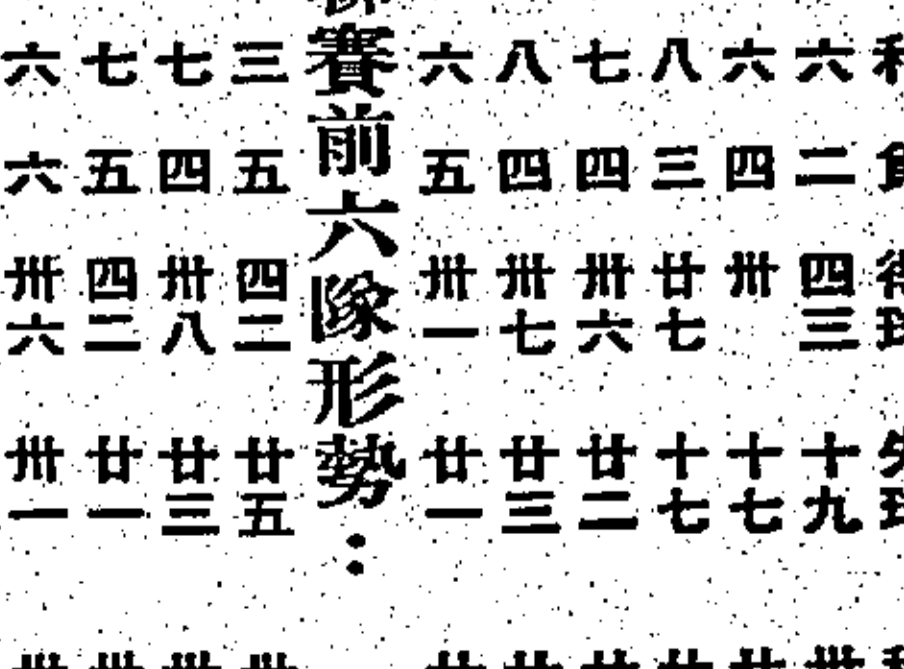 六 二 四三 十九
六 四 卅 十七
八 三 廿七 十七
七 四 卅六 廿二
八 四 卅七 廿三
六 五 卅一 廿一
賽前六隊形勢：
三 五 四二 廿五
七 四 卅八 廿三
七 五 四二 廿一
六 六 卅六 卅一